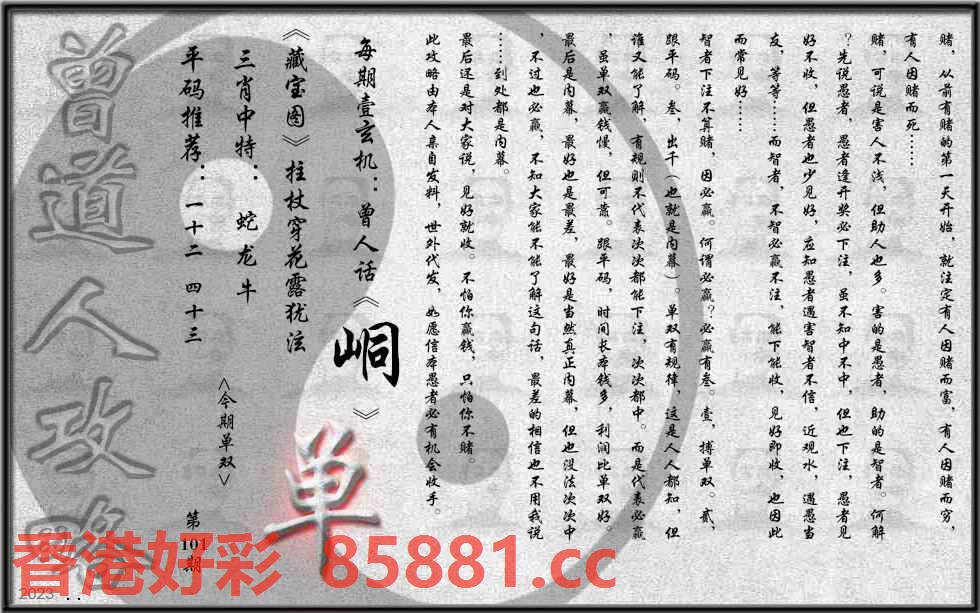 赌，从前有赌的第一天开始，就注定有人因赌而富，有人因赌而穷，
有人因赌而死……
赌，可说是害人不浅，但助人也多。害的是愚者，助的是智者。何解
？先说愚者，愚者逢开奖必下注，虽不知中不中，但也下注，愚者见
好不收，但愚者也少见好，应知愚者遇害智者不信，近观水，遇愚当
友，等等……而智者，不智必赢不注，能下能收，见好即收，也因此
而常见好……
智者下注不算赌，因必赢。何谓必赢？必赢有叁。壹，搏单双。贰，
跟平码。叁，出千（也就是内幕）。单双有规律，这是人人都知，但
谁又能了解，有规则不代表次次都能下注，次次都中。而是代表必赢
，虽单双赢钱慢，但可靠。跟平码，时间长本钱多，利润比单双好。
最后是内幕，最好也是最差，最好是当然真正内幕，但也没法次次中
，不过也必赢，不知大家能不能了解这句话，最差的相信也不用我说
……到处都是内幕。
最后还是对大家说，见好就收。不怕你赢钱，只怕你不赌。
此攻略由本人亲自发料，世外代发，如愿信本愚者必有机会收手。
每期壹玄机：曾人话《峒》
《藏宝图》拄杖穿花露犹泫
三肖中特：蛇龙牛
平码推荐：一十二 四十三
<今期单双>
单
第101期
曾道人攻略
香港好彩 85881.cc
2023